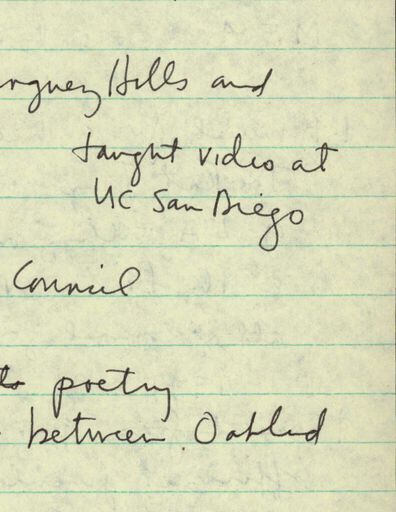 Hills and
taught video at
UC San Diego
Council
to poetry
between Oakland